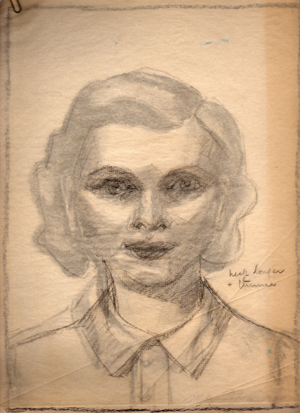 neck longer
+ thinner